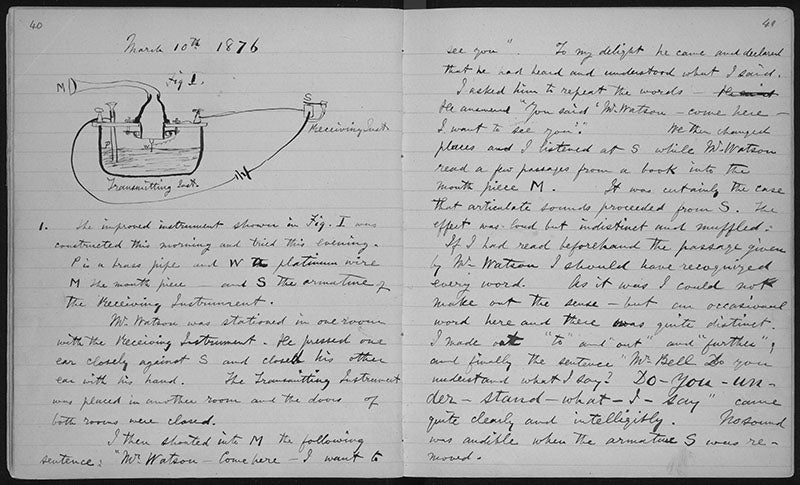 40
March 10th 1876
Fig 1.
M
S
Receiving Inst.
P
W
Transmitting Inst.
1. The improved instrument shown in Fig. I was
constructed this morning and tried this evening.
P is a brass pipe and W the platinum wire
M the mouth piece — and S the armature of
the Receiving Instrument.
Mr. Watson was stationed in one room
with the Receiving Instrument. He pressed one
ear closely against S and closed his other
ear with his hand. The Transmitting Instrument
was placed in another room and the doors of
both rooms were closed.
I then shouted into M the following
sentence: "Mr. Watson — Come here — I want to
41
see you". To my delight he came and declared
that he had heard and understood what I said.
I asked him to repeat the words — He said
He answered "You said 'Mr. Watson — come here —
I want to see you'." We then changed
places and I listened at S while Mr. Watson
read a few passages from a book into the
mouth piece M. It was certainly the case
that articulate sounds proceeded from S. The
effect was loud but indistinct and muffled.
If I had read beforehand the passage given
by Mr. Watson I should have recognized
every word. As it was I could not
make out the sense — but an occasional
word here and there was quite distinct.
I made out "to" and "out" and "further";
and finally the sentence "Mr. Bell Do you
understand what I say? Do-you-un-
der-stand-what-I-say" came
quite clearly and intelligibly. No sound
was audible when the armature S was re-
moved.